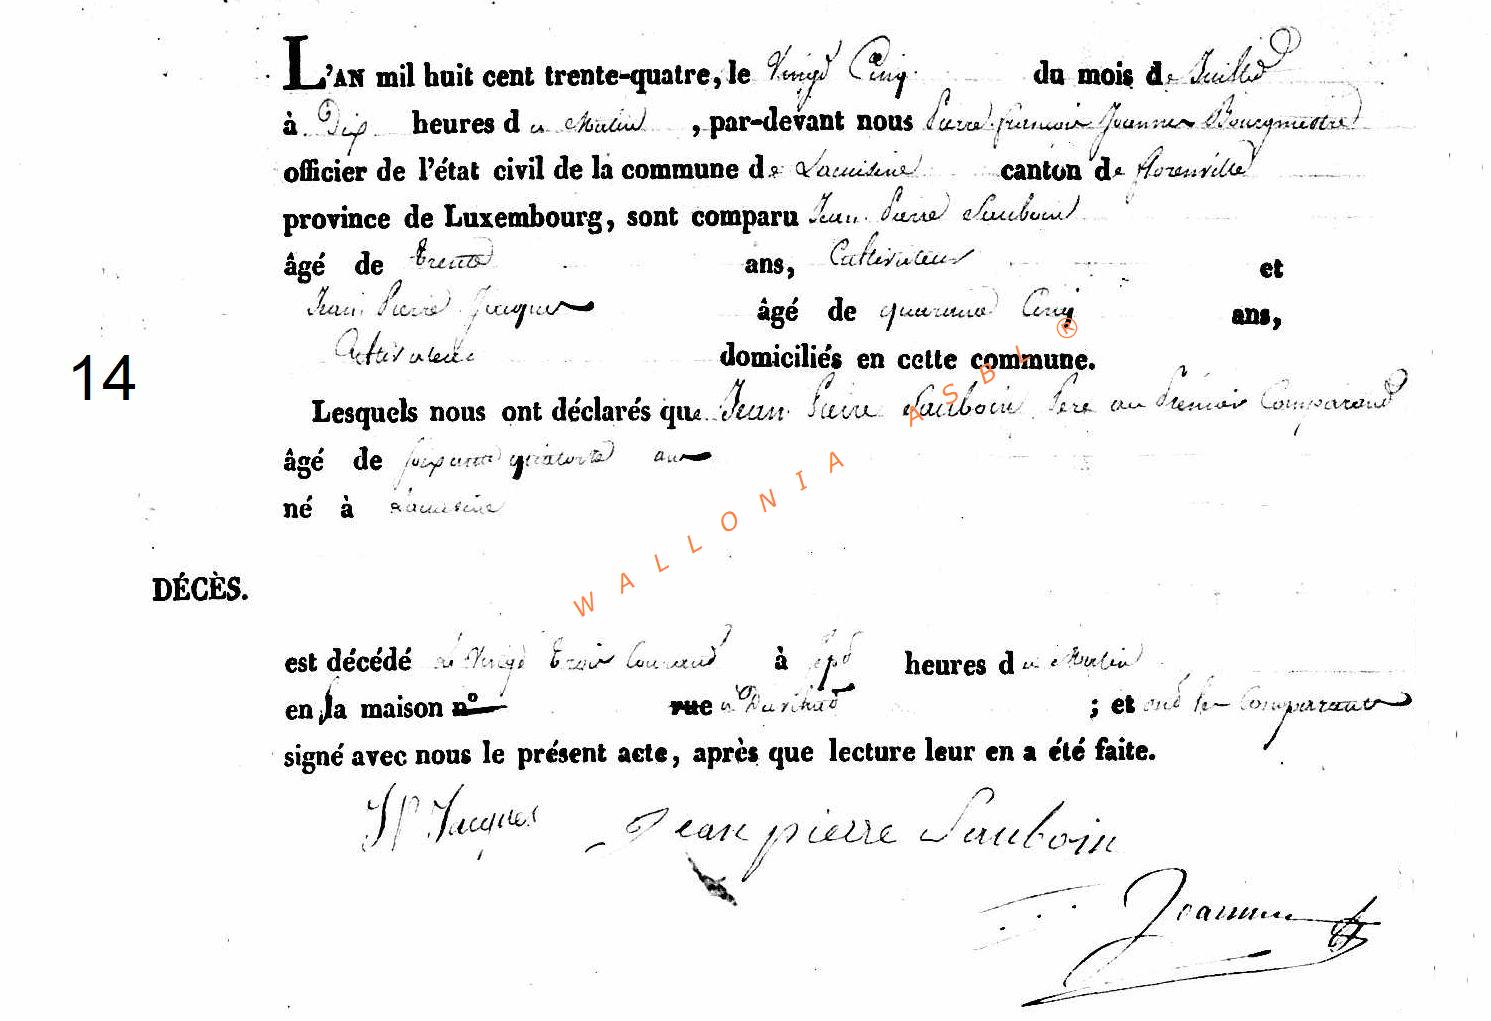 L'AN mil huit cent trente-quatre, le Vingt Cinq du mois de Juillet
à Dix heures du Matin, par-devant nous Pierre françois Joannes Bourgmestre
officier de l'état civil de la commune de Lacuisine canton de florenville
province de Luxembourg, sont comparu Jean Pierre Sauboin
âgé de trente ans, Cultivateur et
Jean Pierre Jacques âgé de quarante Cinq ans,
Cultivateur domiciliés en cette commune.
14
Lesquels nous ont déclarés que Jean Pierre Sauboin Pere au Premier Comparant
âgé de soixante quatorze ans
né à Lacuisine
DÉCÈS.
est décédé le Vingt trois Courant à sept heures du Matin
en sa maison n° rue ; et ont les Comparants
signé avec nous le présent acte, après que lecture leur en a été faite.
JP Jacques Jean pierre Sauboin
Joannes
WALLONIA ASBL ®